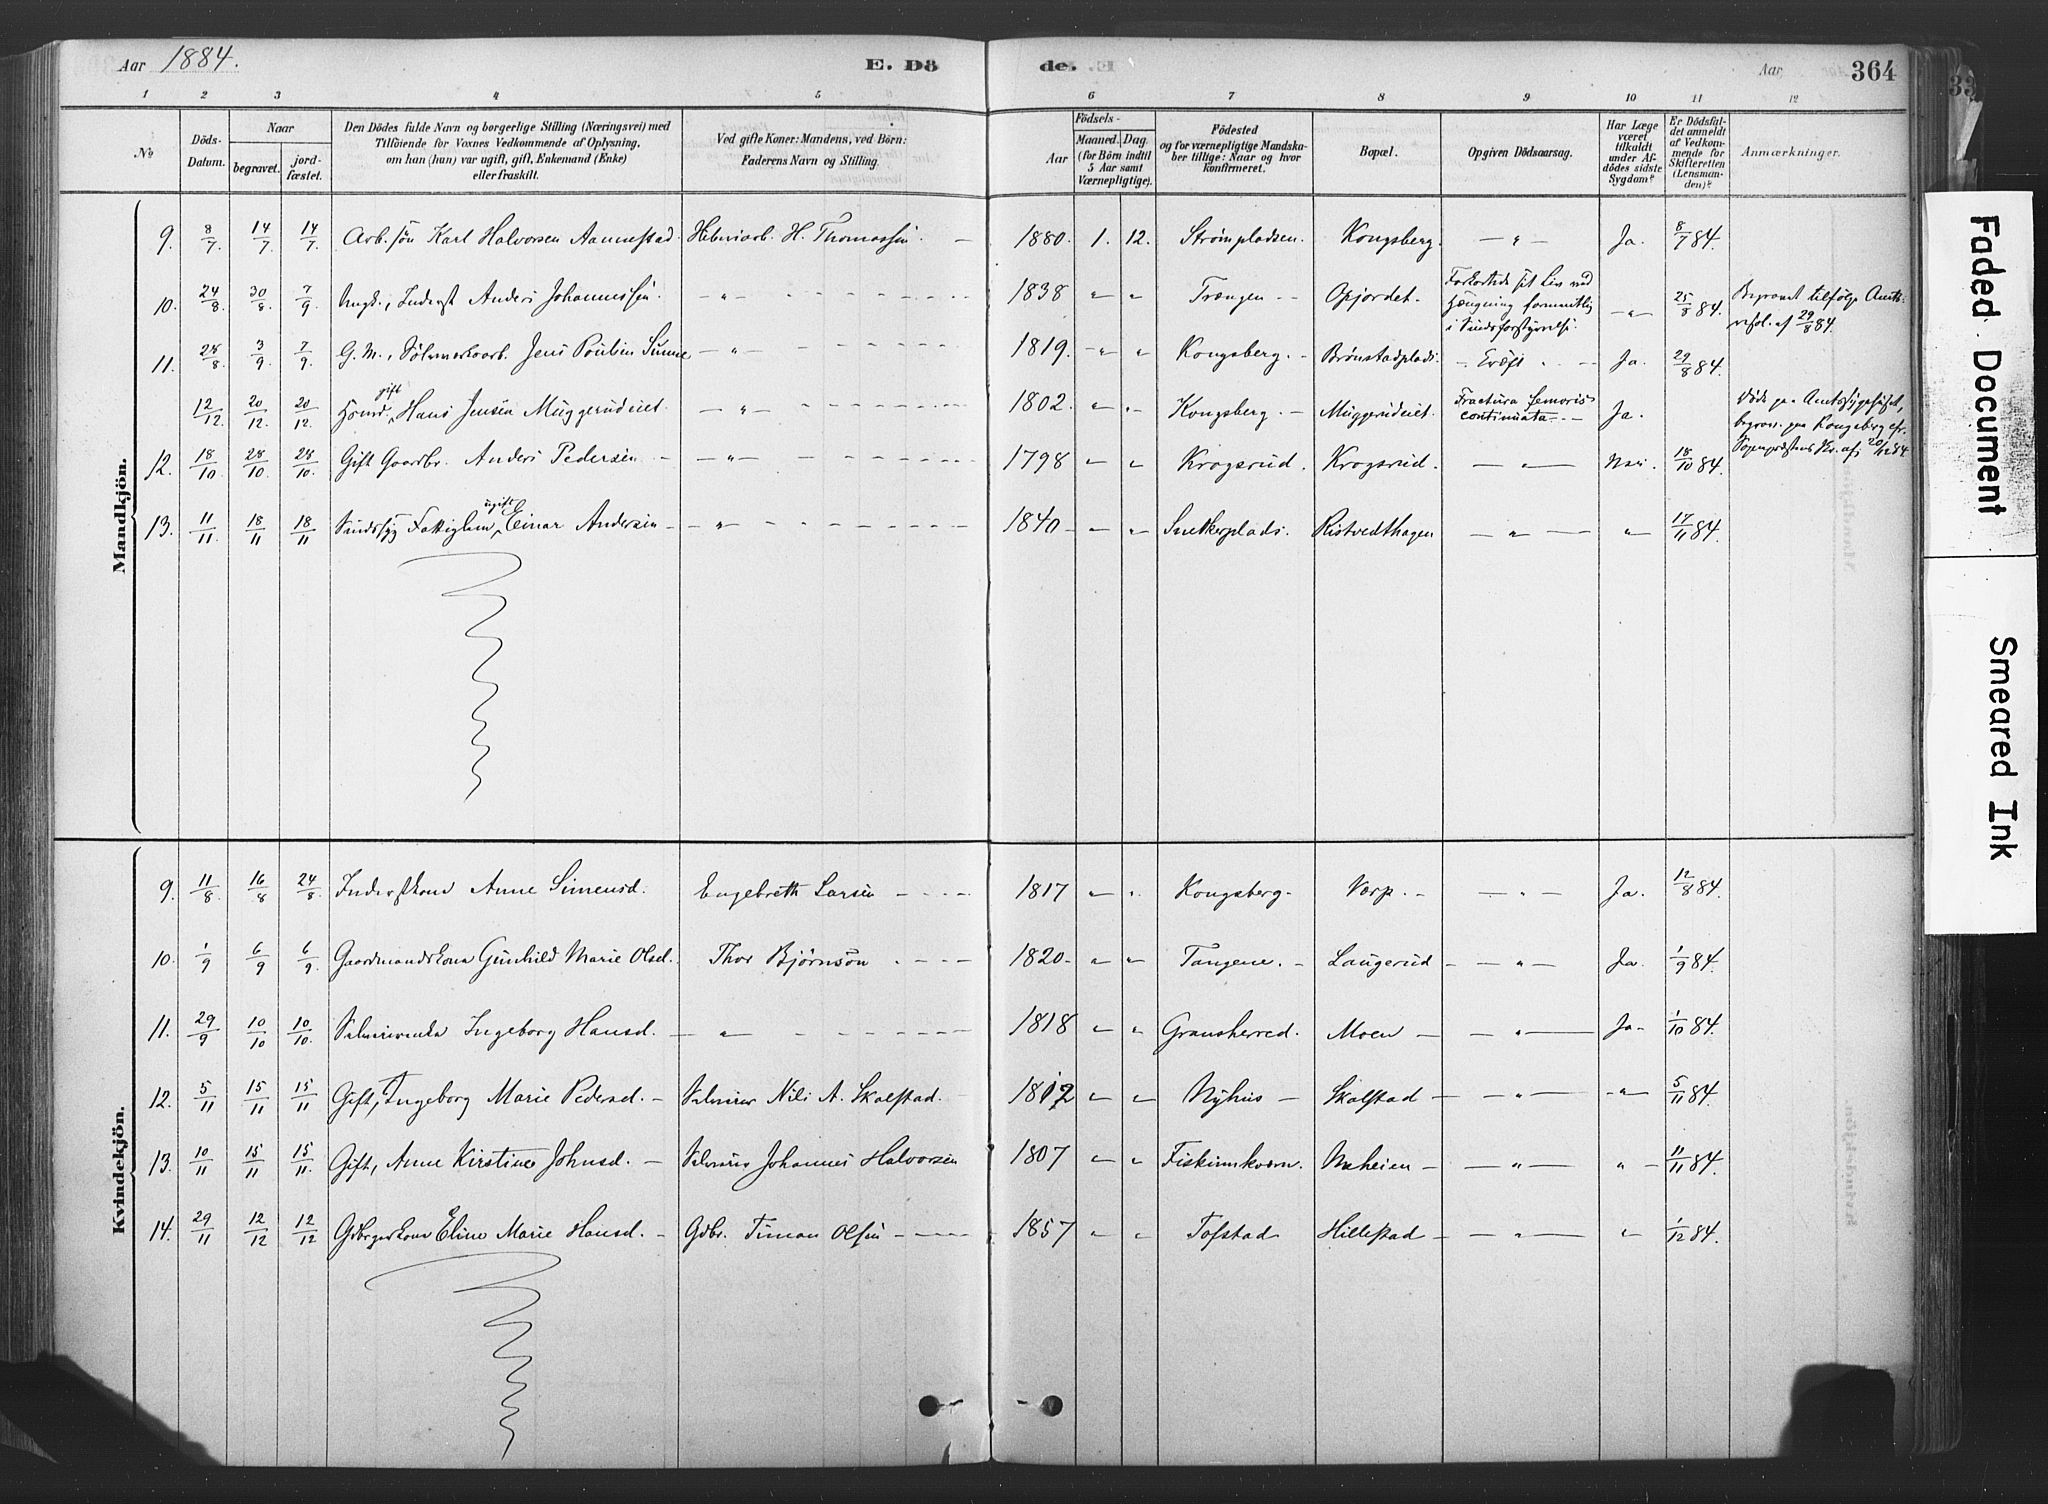 Aar 1884. E. Dö de. Aar 364
1 2 3 4 5 6 7 8 9 10 11 12
No Döds-Datum. Naar begravet. jordfæstet.
Den Dödes fulde Navn og borgerlige Stilling (Næringsvei) med
Tilföiende for Voxnes Vedkommende af Oplysning,
om han (hun) var ugift, gift, Enkemand (Enke)
eller fraskilt.
Ved gifte Koner: Mandens, ved Börn:
Faderens Navn og Stilling.
Födsels-
Aar Maaned. Dag.
(for Börn indtil
5 Aar samt
Værnepligtige).
Födested
og for værnepligtige Mandska-
ber tillige: Naar og hvor
konfirmeret.
Bopæl.
Opgiven Dödsaarsag.
Har Læge
været
tilkaldt
under Af-
dödes sidste
Sygdom?
Er Dödsfal-
det anmeldt
af Vedkom-
mende for
Skifteretten
(Lensman-
den)?
Anmærkninger.
Mandkjön.
9. 8/7 14/7 14/7 Arb. søn Karl Halvorsen Aannestad. H. Thomassen. — 1880. 1. 12. Strømpladsen. Kongsberg. — " — Ja. 8/7 84.
10. 24/8 30/8 7/9 Ungk., Inderst Anders Johannessen. — " — 1838 " " Trængen — Opjordet. Forkortede sit Liv ved Hængning formentlig i Sindsforstyrrelse. — " — 25/8 84. Begravet tilfølge Amtsresol. af 29/8 84.
11. 28/8 3/9 7/9 G. M., Sølvverksarb. Jens Poulsen Sunne — " — 1819. — " " Kongsberg. — Brønstadplads. — Kræft — Ja. 29/8 84.
12/12 20/12 20/12 gift Hans Jensen Muggerudeiet. — " — 1802. " " Kongsberg. — Muggerudeiet. Fractura femoris continuata — Ja. Døde paa Amtssygehuset, begrav. paa Kongsberg efter Sogneprestens af 20/12 84
12. 18/10 28/10 28/10 Gift Gaardbr. Anders Pedersen — — " — 1798 " " Krogsrud. Krogsrud. — " — Nei. 18/10 84.
13. 11/11 18/11 18/11 Sindssyg Fattiglem, ugift Einar Andersen — — " — 1840 — " " Snekkerplads. Ristvedthagen — " — " 17/11 84.
Kvindekjön.
9. 11/8 16/8 24/8 Inderstkone Anne Simensd. Engebreth Larsen — 1817 " " Kongsberg — Vorp. — — " — Ja. 12/8 84.
10. 1/9 6/9 6/9 Gaardmandskone Gunhild Marie Olsd. Thor Bjørnsøn — 1820 — " " Tangene. — Laugerud — " — Ja. 1/9 84.
11. 29/9 10/10 10/10 Selveierenke Ingeborg Hansd. — " — 1818 " " Gransherred. Moen — " — Ja — 1/10 84.
12. 5/11 15/11 15/11 Gift, Ingeborg Marie Pedersd. — Selveier Nils A. Skalstad. 1812 " " Nyhus — Skalstad — " — " 5/11 84.
13. 10/11 15/11 15/11 Gift, Anne Kirstine Johnsd. — Selveier Johannes Halvorsen 1807 " " Fiskumkvern. Moheien — " — " 11/11 84.
14. 29/11 12/12 12/12 Gdbrgerkone Eline Marie Hansd. — Gdbr. Timan Olsen — 1857 " " Tofstad Hillestad — " — " 1/12 84.
Faded Document
Smeared Ink